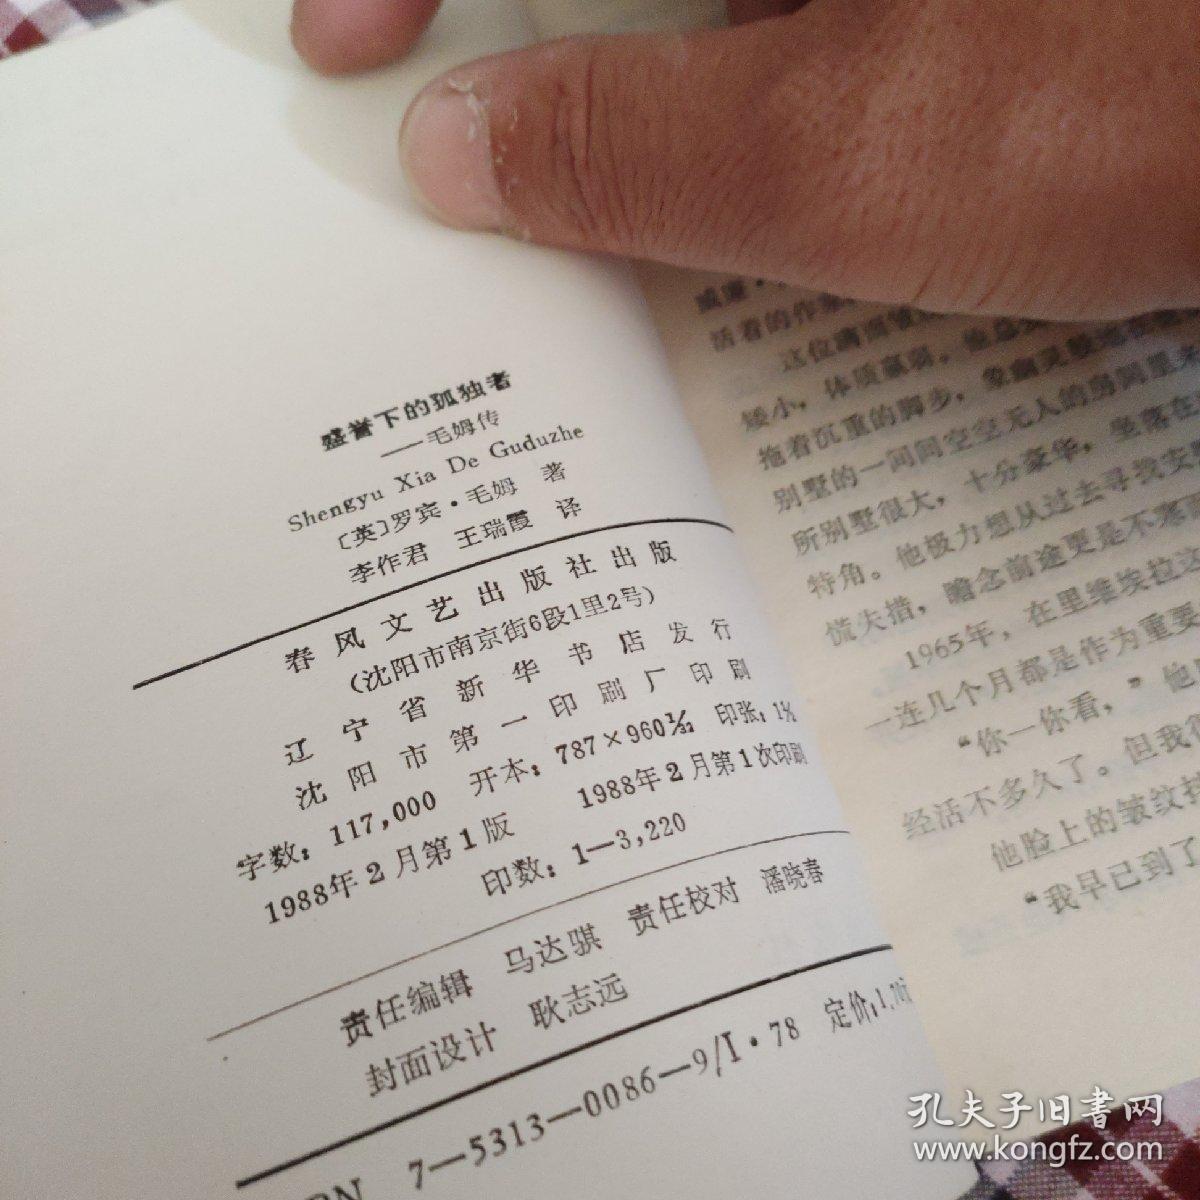 盛誉下的孤独者
——毛姆传
Shengyu Xia De Guduzhe
〔英〕罗宾·毛姆 著
李作君 王瑞霞 译
春风文艺出版社出版
(沈阳市南京街6段1里2号)
辽宁省新华书店发行
沈阳市第一印刷厂印刷
字数：117,000 开本：787×960 1/32 印张：
1988年2月第1版 1988年2月第1次印刷
印数：1—3,220
责任编辑 马达骐 责任校对 潘晓春
封面设计 耿志远
7—5313—0086—9/I·78 定价：1.70
活着的作
这位满面皱
矮小，体质羸弱。他总
拖着沉重的脚步，象幽灵般地在
别墅的一间间空空无人的房间里
所别墅很大，十分豪华，坐落在
特角。他极力想从过去寻找安
慌失措，瞻念前途更是不寒
1965年，在里维埃拉这
一连几个月都是作为重要
“你—你看，”他
经活不多久了。但我
他脸上的皱纹
“我早已到了
孔夫子旧书网
www.kongfz.com